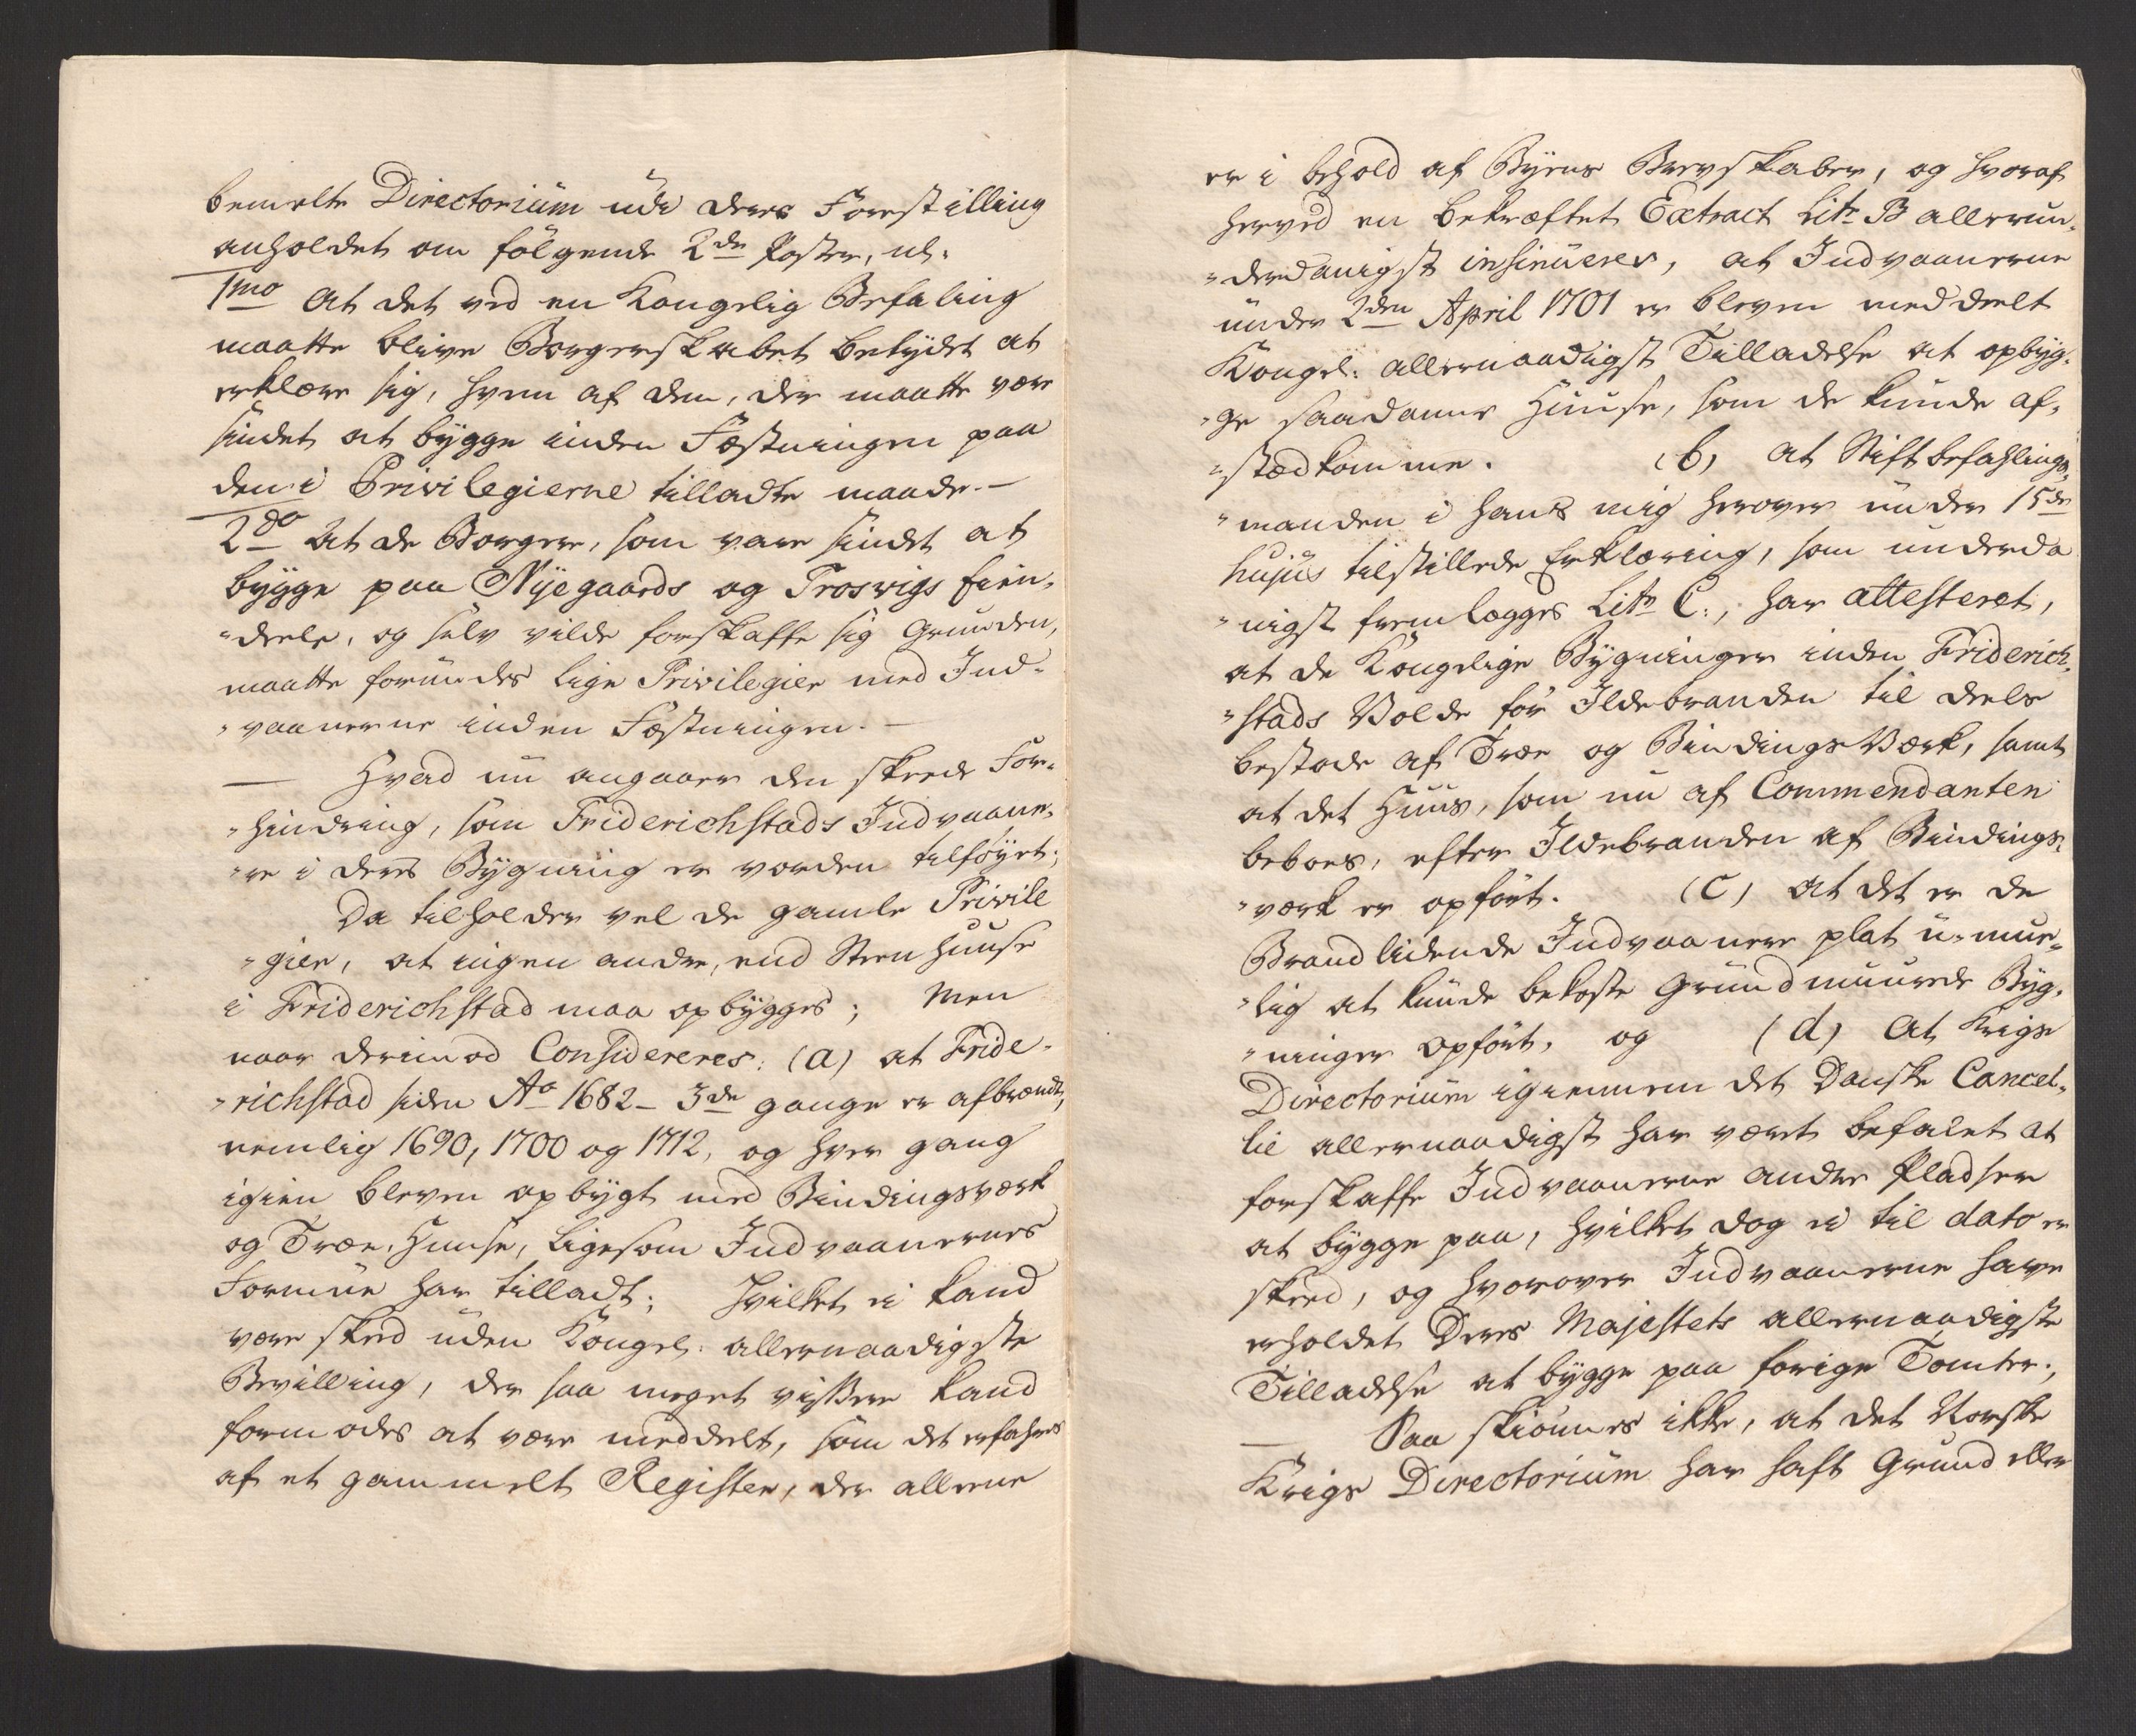 bemelte Directorium udi deres Forestilling
anholdet om følgende 2de Poster, nl.
1mo At det ved en Kongelig Befaling
maatte blive Borgerskabet betydet at
erklære sig, hvem af dem, der maatte være
sindet at bygge inden Fæstningen paa
den i Privilegierne tilladte maade.—
2do At de Borgere, som vare sindet at
bygge paa Nyegaards og Trosvigs Eien-
"deele, og selv vilde forskaffe sig Grunden,
maatte forundes lige Privilegier med Ind-
"vaanerne inden Fæstningen.—
— Hvad nu angaaer den skeede For-
"hindring, som Friderichstads Indvaane-
"re i deres Bygning er vorden tilføyet;
Da tilholder vel de gamle Privile
"gier, at ingen andre, end Steen Huuse
i Friderichstad maa opbygges; Men
naar derimod Considereres: (a) at Fride-
"richstad siden Ao 1682 - 3de gange er afbrændt,
nemlig 1690, 1700 og 1712, og hver gang
igien bleven opbygt med Bindingsverk
og Træe-Huuse, ligesom Indvaanernes
Formue har tilladt; Hvilket ei kand
være skeed uden Kongel: allernaadigste
Bevilling, der saa meget vissere kand
formodes at være meddeelt, som det erfahres
af et gammelt Register, der alleene
er i behold af Byens Brevskaber, og hvoraf
herved en bekræftet Extract Litr B allerun-
"derdanigst insinueres, at Indvaanerne
under 2den April 1701 er bleven meddeelt
Kongel: allernaadigst Tilladelse at opbyg-
"ge saadanne Huuse, som de kunde af-
"stædkomme. (b) at Stiftbefahlings-
"manden i hans mig herover under 15de
hujus tilstillede Erklæring, som underda
"nigst fremlægges Litr C:, har attesteret,
at de Kongelige Bygninger inden Friderich-
"stads Volde før Ildebranden til deels
bestode af Træe og BindingsVærk, samt
at det Huus, som nu af Commendanten
beboes, efter Ildebranden af Bindings-
"værk er opført. (C) at det er de
Brandlidende Indvaanere plat u-mue-
"lig at kunde bekoste Grundmuurede Byg-
"ninger opført, og (d) At Krigs
Directorium igiennem det Danske Cancel-
lie allernaadigst har været befalet at
forskaffe Indvaanerne andre Pladser
at bygge paa, hvilket dog ei til dato er
skeed, og hvorover Indvaanerne have
erholdet Deres Majestets allernaadigste
Tilladelse at bygge paa forige Tomter;
— Saa skiønnes ikke, at det Norske
Krigs Directorium har haft Grund eller